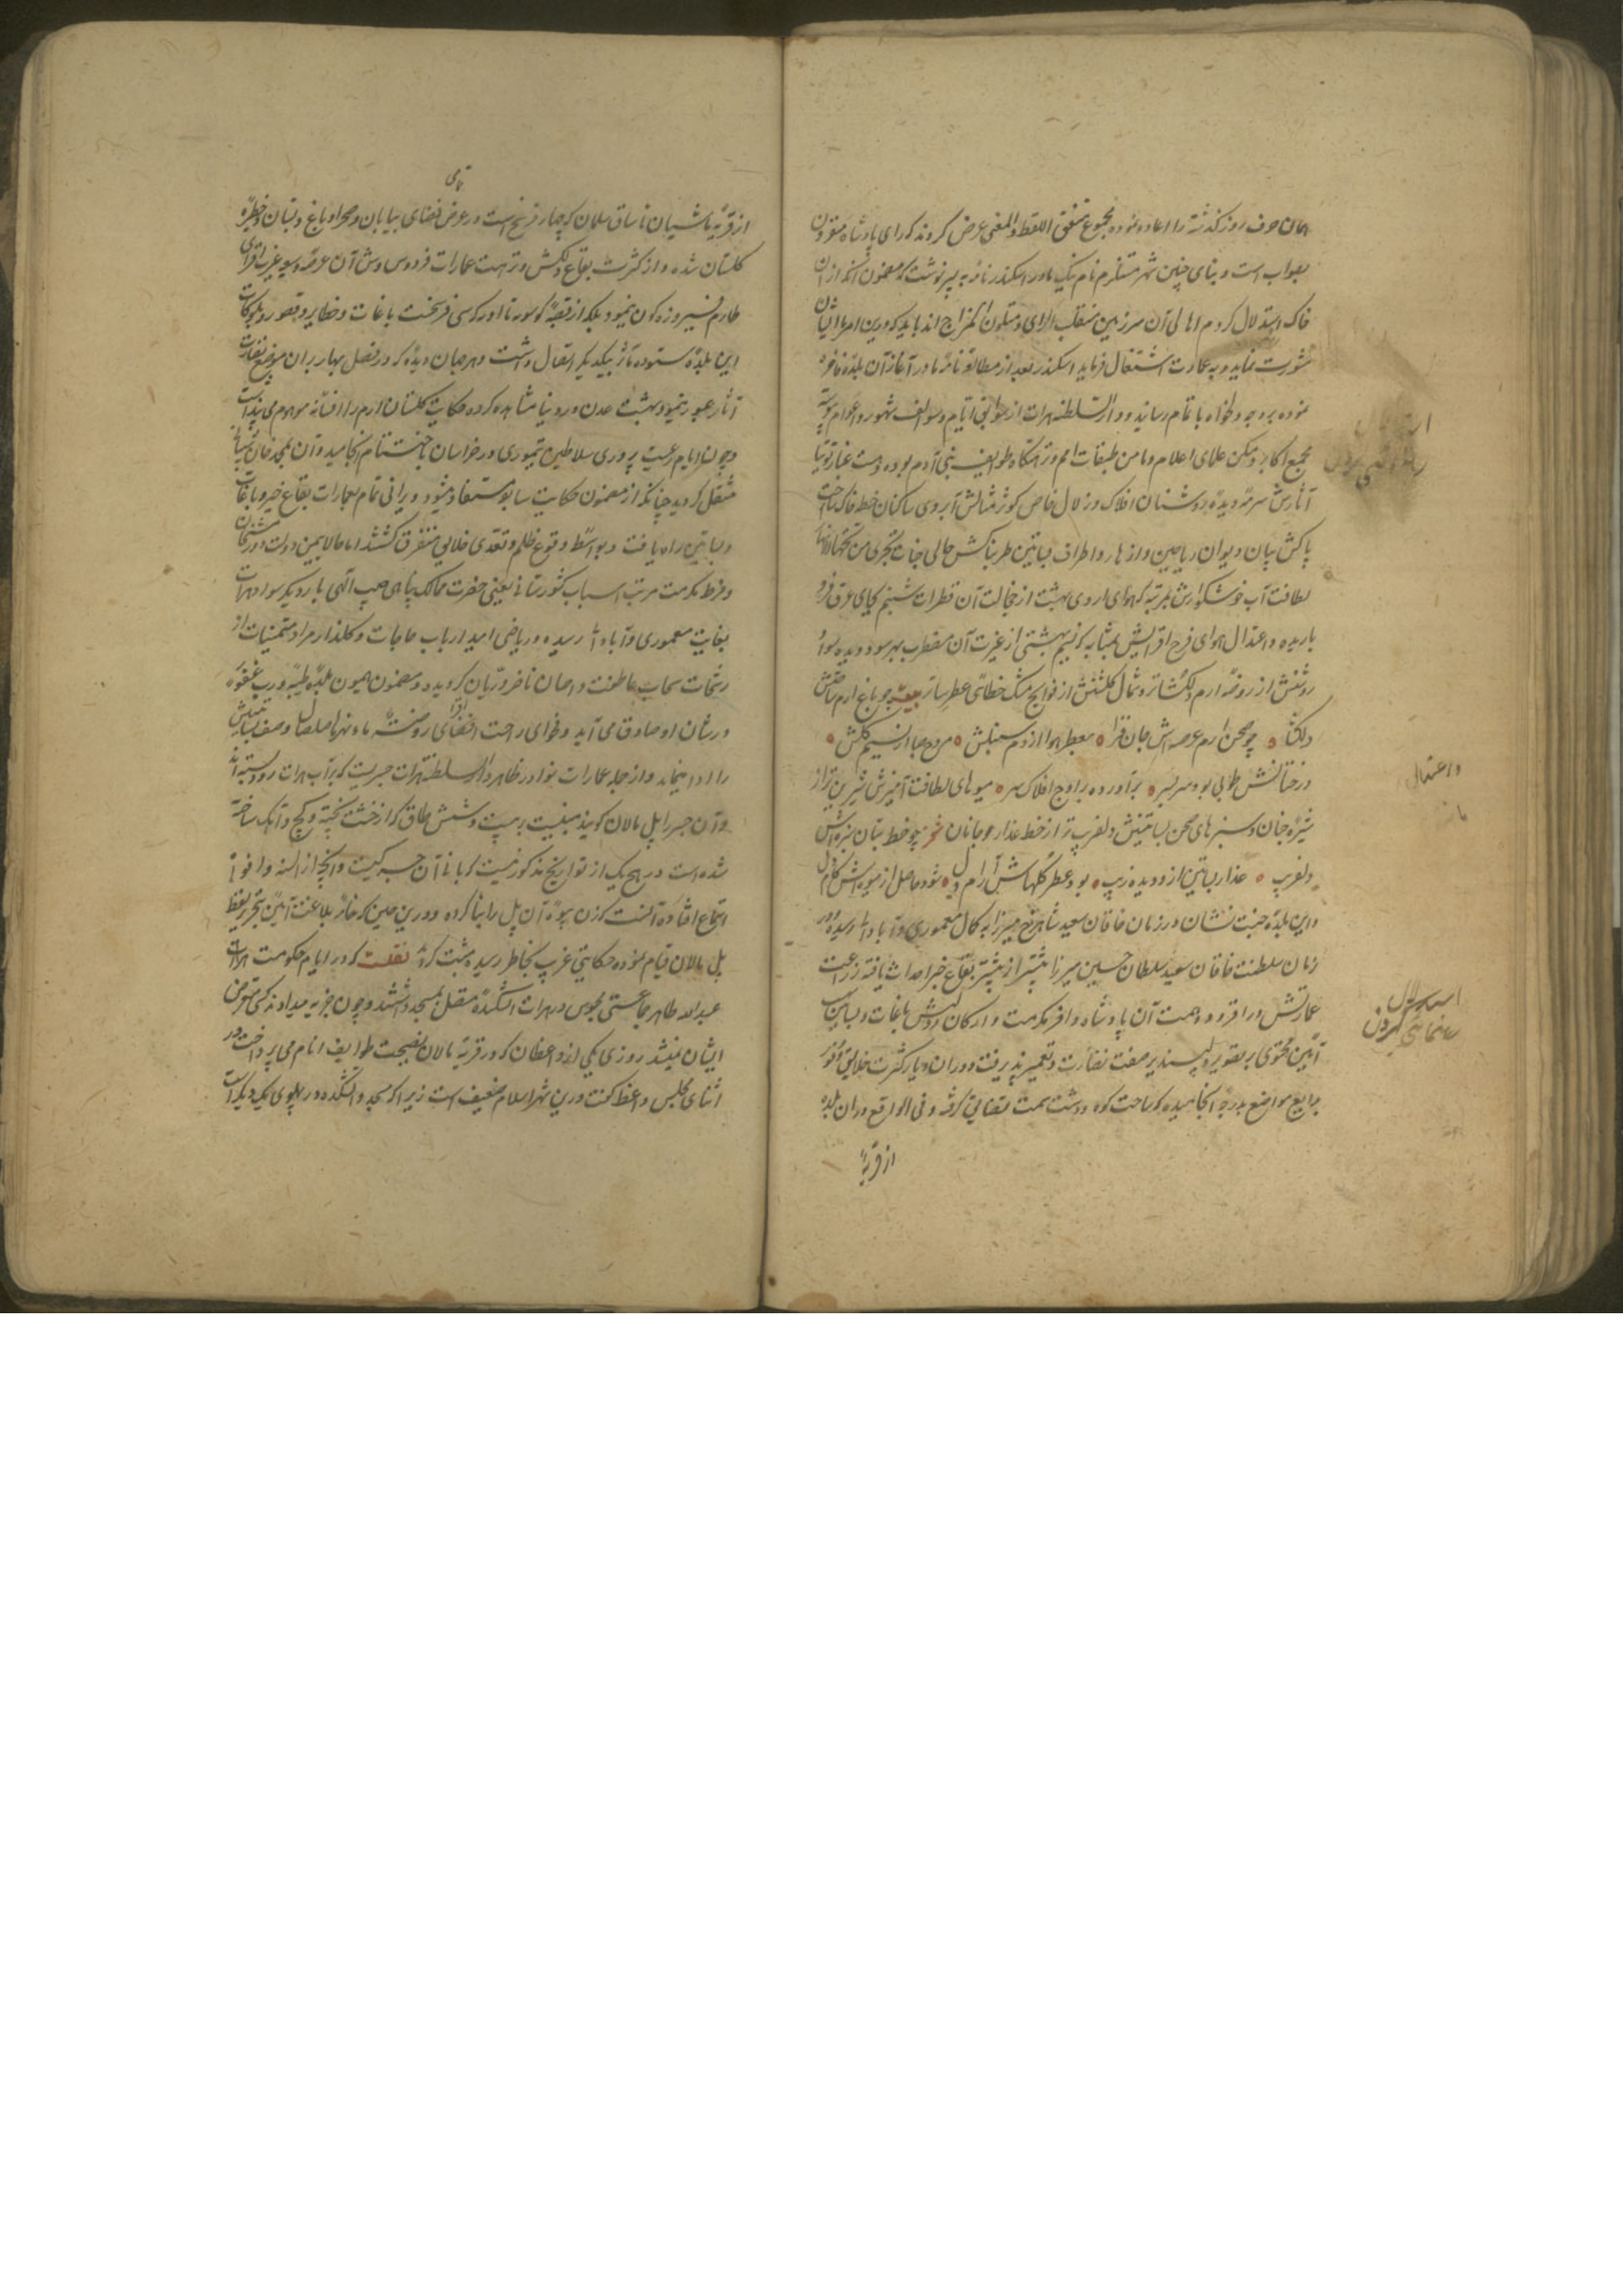 همان حرف روز گذشته را اعاده نموده مجموع متفق اللفظ والمعنی عرض کردند که رای پادشاه مقرون
بصواب است و بنای چنین شهر مستلزم نام نیک مادر اسکندر نامه به پسر نوشت که مضمون آنکه از آن
خاک استدلال کردم اهالی آن سرزمین منقلب الرای و متلون المزاج اند باید که درین امر با ایشان
مشورت ننماید و به عمارت اشتغال فرماید اسکندر بعد از مطالعه نامه مادر آغاز آن بلده فاخره
نموده بر وجه دلخواه باتمام رسانید و دار السلطنه هرات از سوابق ایام و سوالف شهور و اعوام پیوسته
مجمع اکابر و مسکن علمای اعلام و مامن طبقات امم و آرامگاه طوایف بنی آدم بوده و هست غبار توتیا
آثارش سرمه دیده روشنان افلاک و زلال خاص کوثر مثالش آبروی ساکنان خطه خاک ساحت
پاکش بسان دیوان ریاحین و ازهار و اطراف بساتین طربناکش حالی جنات تجری من تحتها الانهار
لطافت آب خوشگوارش بمرتبه که هوای اردی بهشت از خجالت آن قطرات شبنم بجای عرق فرو
باریده و اعتدال هوای فرح افزایش بمثابه که نسیم بهشتی از غیرت آن مضطرب بهر سو دویده سواد
روشنش از روضه ارم دلگشاتر و شمال گلشنش از فوایح مشک خطائی عطرساتر بیت چو باغ ارم ساحتش
دلگشا چو صحن ارم عرصه‌اش جان فزا معطر هوا از دم سنبلش مروح صبا از نسیم گلش
درختانش طوبی بود سربسر برآورده بر اوج افلاک سر میوهای لطافت آمیزش شیرین‌تر از
شیره جان و سبزهای صحن بساتینش دلفریب‌تر از خط عذار جانان شعر چو خط بتان سبزه‌اش
دلفریب عذار بساتین ازو دیده زیب بود عطر گلهاش آرام دل شود حاصل از میوه‌اش کام دل
و این بلده جنت نشان در زمان خاقان سعید شاهرخ میرزا به کمال معموری و آبادانی رسیده و در
زمان سلطنت خاقان سعید سلطان حسین میرزا بیشتر از پیشتر بقاع خیر احداث یافته زراعت
عمارتش در افزود و همت آن پادشاه وافر مکرمت و ارکان دولتش باغات و بساتین
آئین محتوی بر تصویر دلپسندیر صفت نضارت و تعمیر پذیرفت و در آن دیار کثرت خلایق و وفور
بدایع مواضع بدرجه انجامیده که ساحت کوه و دشت سمت تضایق گرفته و فی الواقع در آن بلده
از قریه
و اعتدال
تمامی
از قریه باشیان تا ساق سلمان که چهار فرسخ است در عرض فضای بیابان و صحرا و باغ و بستان و حظیره
گلستان شده و از کثرت بقاع دلکش و نزهت عمارات فردوس وش آن عرصه وسیع غیرت افزای
طارم فیروزه گون مینمود بلکه از قصبه کوسویه تا اوبه که سی فرسخست باغات و حظایر و قصور و بلوکات
این بلده ستوده مآثر بیکدیگر اتصال داشت و هر صاحب دیده که در فصل بهار بر آن مواضع نضارت
آثار عبور مینمود بهشت عدن در دنیا مشاهده کرده حکایت گلستان ارم را افسانه موهوم می‌پنداشت
و چون ایام رعیت پروری سلاطین تیموری در خراسان باختتام انجامید و آن به محمد خان شیبانی
منتقل گردید چنانکه از مضمون حکایت سابق مستفاد میشود ویرانی تمام بعمارات بقاع خیر و باغات
و بساتین راه یافت و بواسطه وقوع ظلم و تعدی خلایق متفرق گشتند اما حالا بیمن دولت دورمشخان
و فرط مکرمت مرتب اسباب کشورستانی یعنی حضرت ممالک پناهی حبیب اللهی بار دیگر سواد هرات
بغایت معموری و آبادانی رسیده و ریاض امید ارباب حاجات و گلذار مراد مستمنیات از
رشحات سحاب عاطفت و احسان ناضر و ریان گردیده و مضمون میمون بلدة طیبة و رب غفور
در شأن او صادق می‌آید و فحوای راحت افضای روضة ماء نهرها سلسال وصف بساتینش
را ادا مینماید و از جمله عمارات نوادر ظاهر دار السلطنه هرات جسریست که بر آب هرات رود بسته‌اند
و آن جسر را پل مالان گویند مبنیست بر بیست و شش طاق که از خشت پخته و گچ و آهک ساخته
شده است در هیچ یک از تواریخ مذکور نیست که بانی آن جسر کیست و آنچه از السنه و افواه
استماع افتاده آنست که زن بیوه آن پل را بنا کرده و درین حین که خامه بلاغت آئین بتحریر لفظ
پل مالان قیام نموده حکایتی غریب بخاطر رسیده ثبت کرده نقلست که در ایام حکومت هرات
عبدالله طاهر جماعتی مجوس در هرات آتشکده متصل بمسجد داشتند و چون جزیه میدادند کسی متعرض
ایشان نمیشد روزی یکی از واعظان که در قریه مالان بنصیحت طوایف انام می‌پرداخت در
اثنای مجلس واعظ گفت درین شهر اسلام ضعیف است زیرا که مسجد و آتشکده در پهلوی یکدیگر است